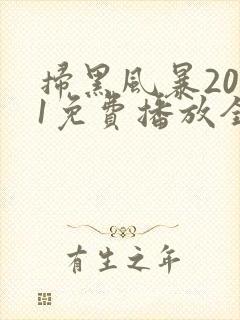 掃黑風暴20
1免費播放全
有生之年